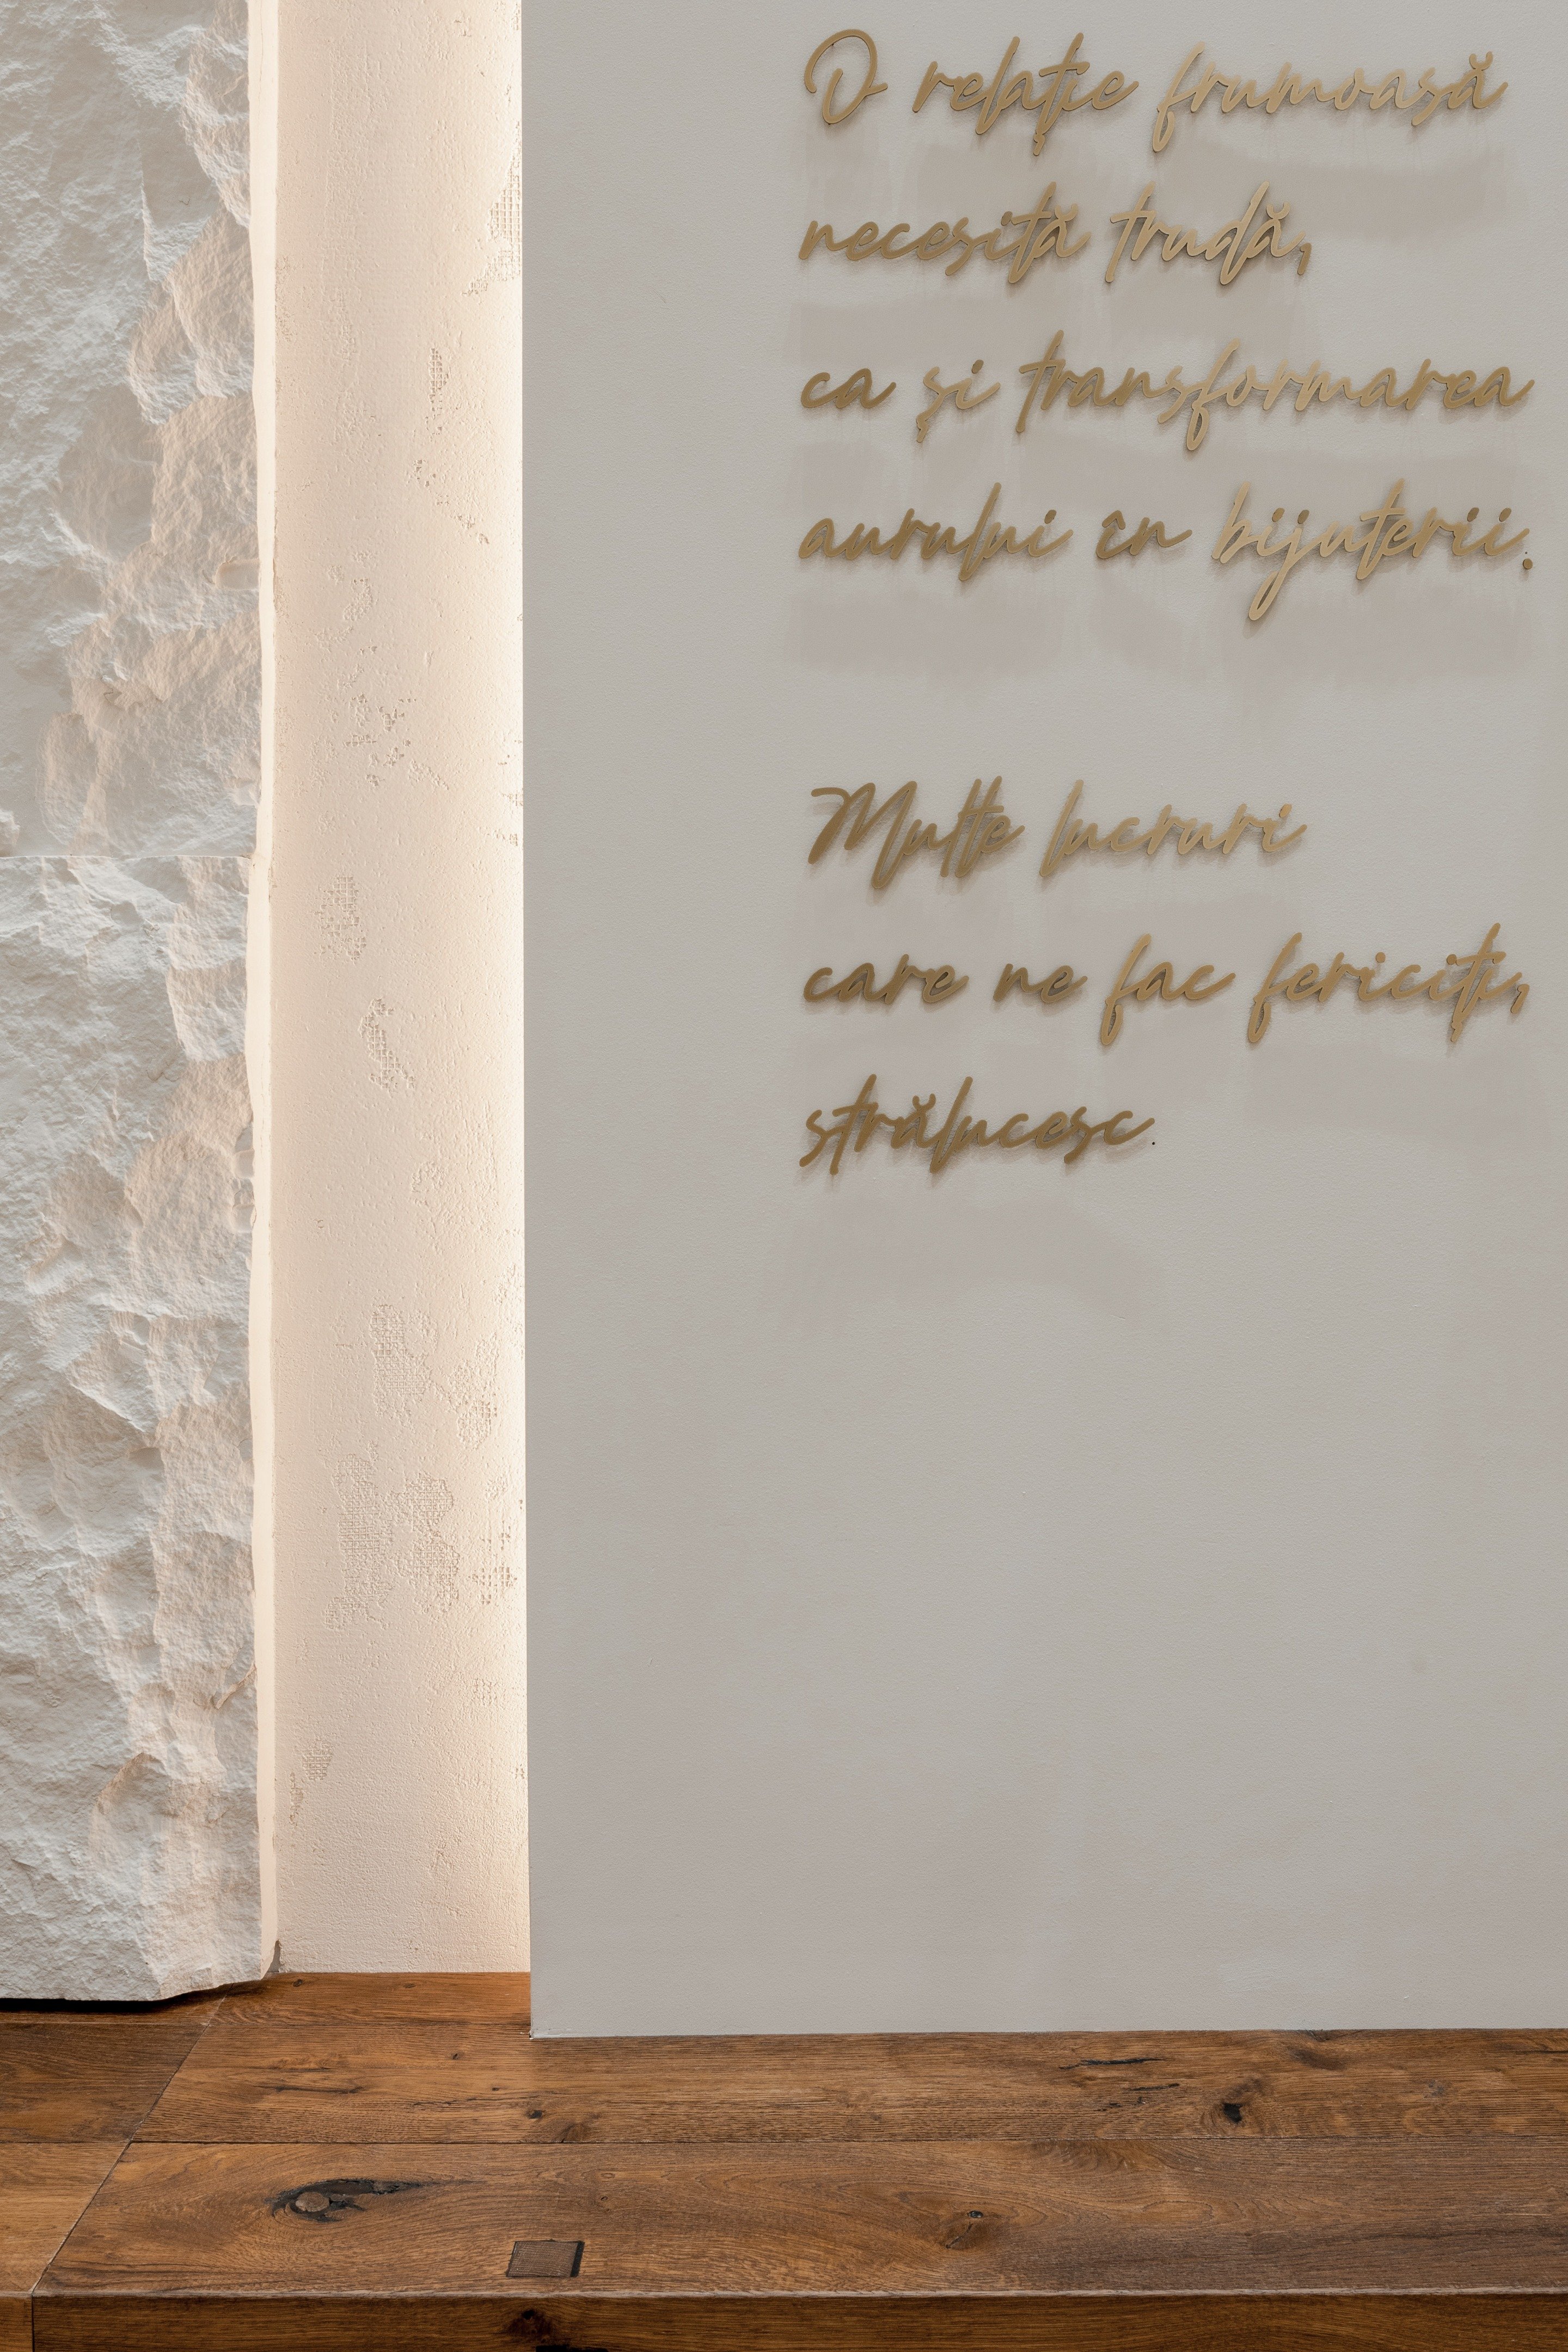 O relație frumoasă
necesită trudă,
ca și transformarea
aurului în bijuterii.
Multe lucruri
care ne fac fericiți,
strălucesc.